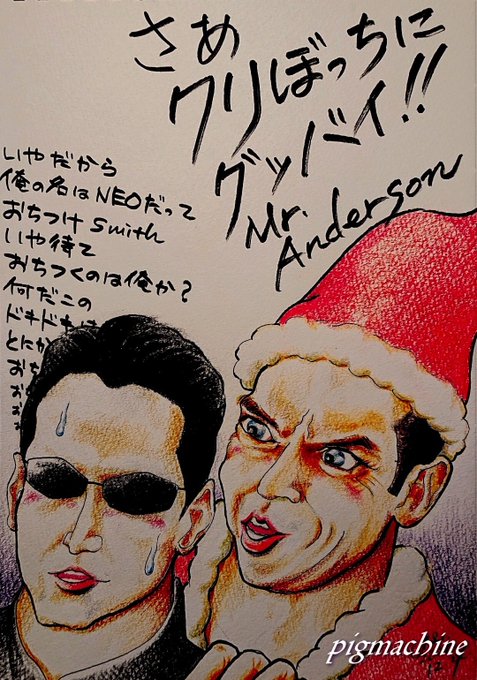 さあ
クリぼっちに
グッバイ!!
Mr.
Anderson
いやだから
俺の名はNEOだって
おちつけ Smith
いや待て
おちつくのは俺か?
何だこの
ドキドキは
とにか
おち
お
お
pigmachine